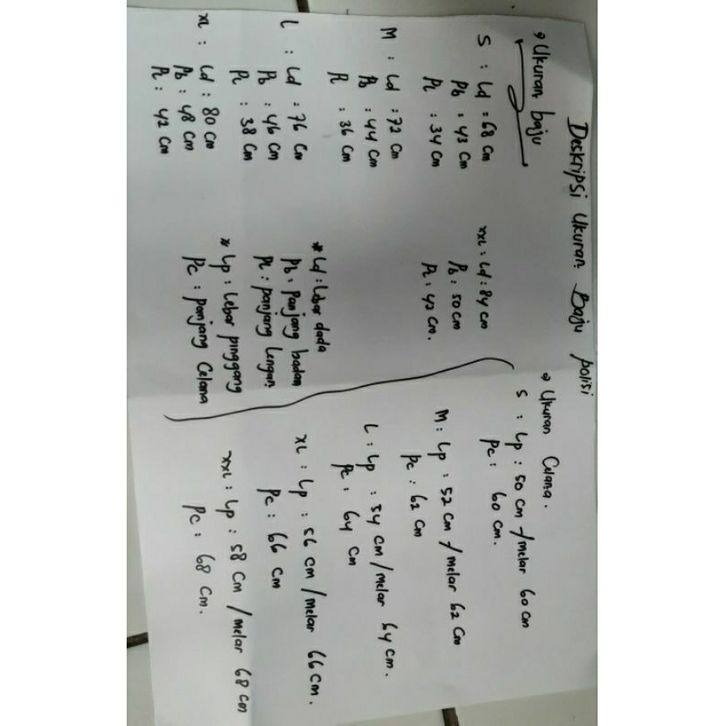 Deskripsi Ukuran Baju polisi
Ukuran baju
S : Ld : 68 Cm
Pb : 43 Cm
PL : 34 Cm
M : Ld : 72 Cm
Pb : 44 Cm
PL : 36 Cm
L : Ld : 76 Cm
Pb : 46 Cm
PL : 38 Cm
XL : Ld : 80 Cm
Pb : 48 Cm
PL : 42 Cm
XXL : Ld : 84 Cm
Pb : 50 Cm
PL : 42 Cm.
* Ld : Lebar dada
Pb : Panjang badan
PL : panjang Lengan
* Lp : Lebar pinggang
Pc : panjang Celana
Ukuran Celana.
S : Lp : 50 Cm / melar 60 Cm
Pc : 60 Cm.
M : Lp : 52 Cm / melar 62 Cm
Pc : 62 Cm
L : Lp : 54 Cm / melar 64 Cm.
Pc : 64 Cm
XL : Lp : 56 Cm / melar 66 Cm.
Pc : 66 Cm
XXL : Lp : 58 Cm / melar 68 Cm
Pc : 68 Cm.